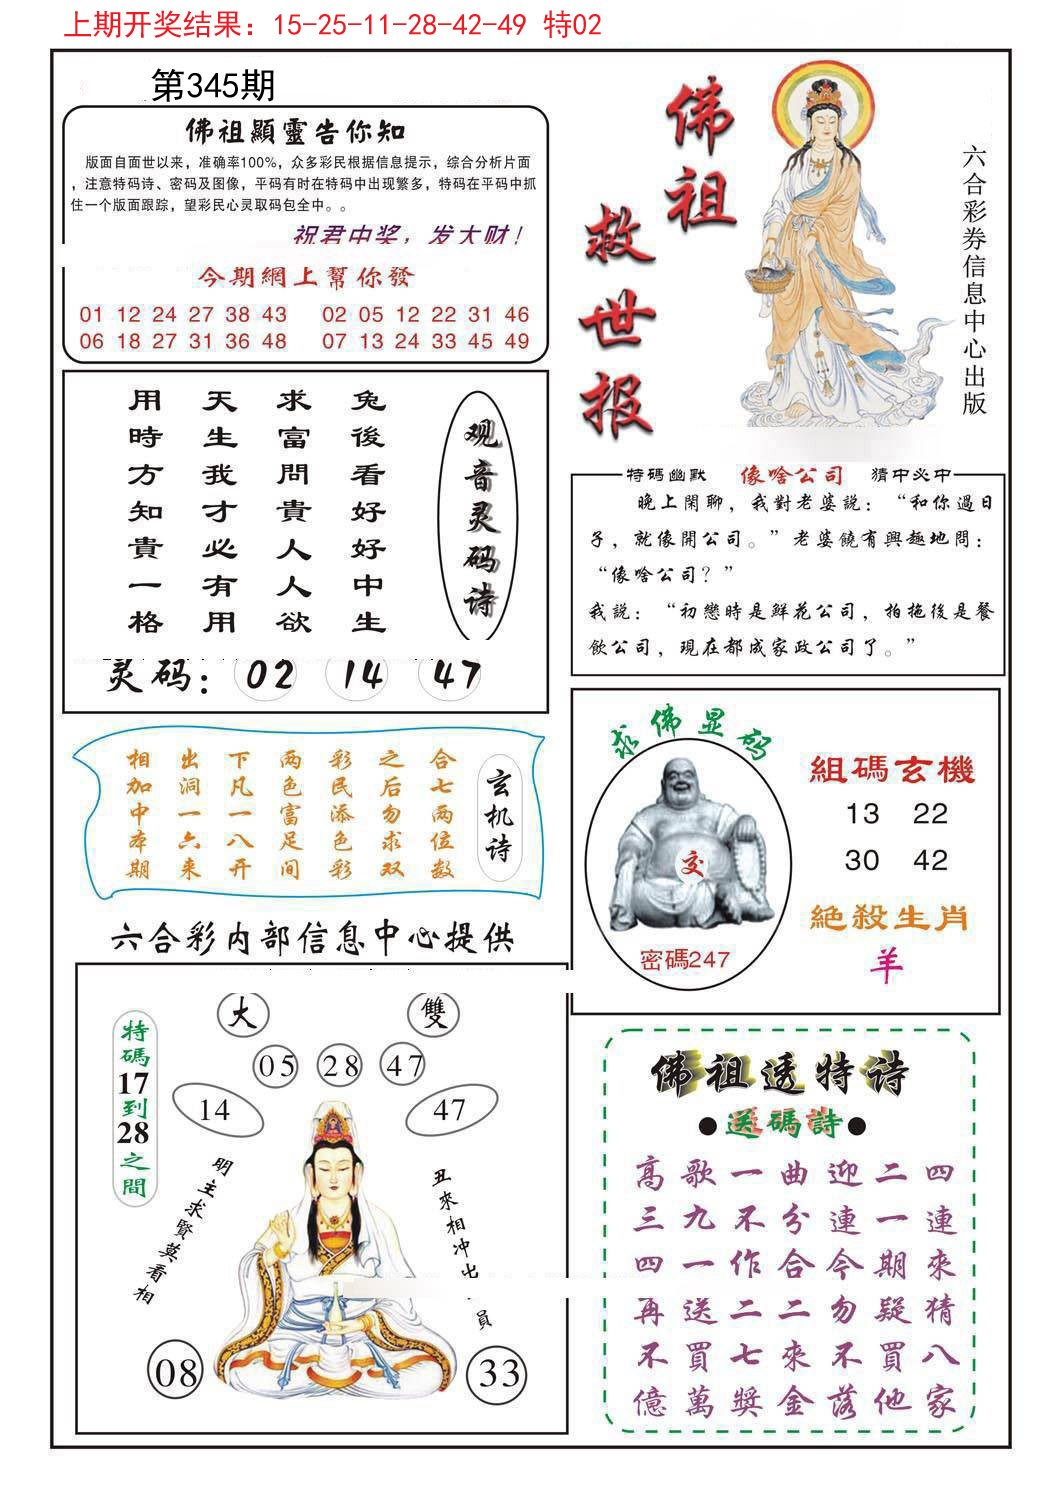 上期开奖结果：15-25-11-28-42-49 特02
第345期
佛祖顯靈告你知
版面自面世以来，准确率100%，众多彩民根据信息提示，综合分析片面
，注意特码诗、密码及图像，平码有时在特码中出现繁多，特码在平码中抓
住一个版面跟踪，望彩民心灵取码包全中。。
祝君中奖，发大财！
今期網上幫你發
01 12 24 27 38 43 02 05 12 22 31 46
06 18 27 31 36 48 07 13 24 33 45 49
佛祖
救世报
六合彩券信息中心出版
观音灵码诗
兔後看好好中生
求富問貴人人欲
天生我才必有用
用時方知貴一格
灵码：02 14 47
特碼幽默 像啥公司 猜中必中
晚上閑聊，我對老婆説：“和你過日
子，就像開公司。”老婆饒有興趣地問：
“像啥公司？”
我説：“初戀時是鮮花公司，拍拖後是餐
飲公司，現在都成家政公司了。”
玄机诗
合七两位数
之后勿求双
彩民添色彩
两色富足间
下凡一八开
出洞一六来
相加中本期
求佛显码
交
密碼247
組碼玄機
13 22
30 42
絶殺生肖
羊
六合彩内部信息中心提供
大 雙
05 28 47
14 47
特碼17到28之間
明主求賢莫看相
丑來相冲出
員
08 33
佛祖透特诗
●送碼詩●
高歌一曲迎二四
三九不分連一連
四一作合今期來
再送二二勿疑猜
不買七來不買八
億萬獎金落他家